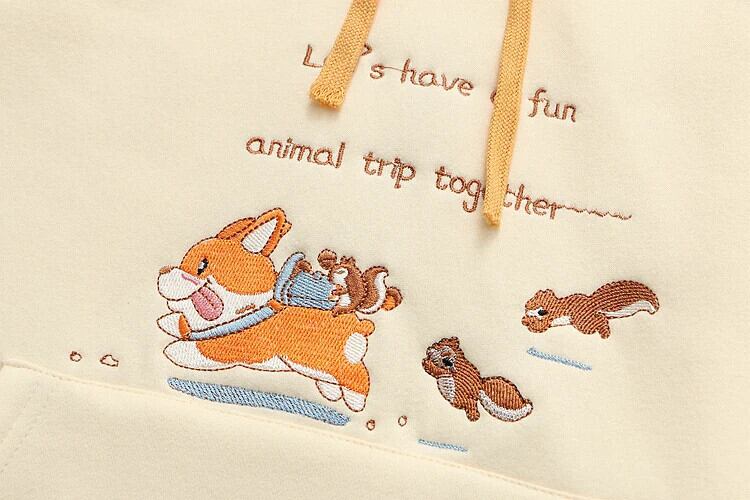 Let's have a fun
animal trip together